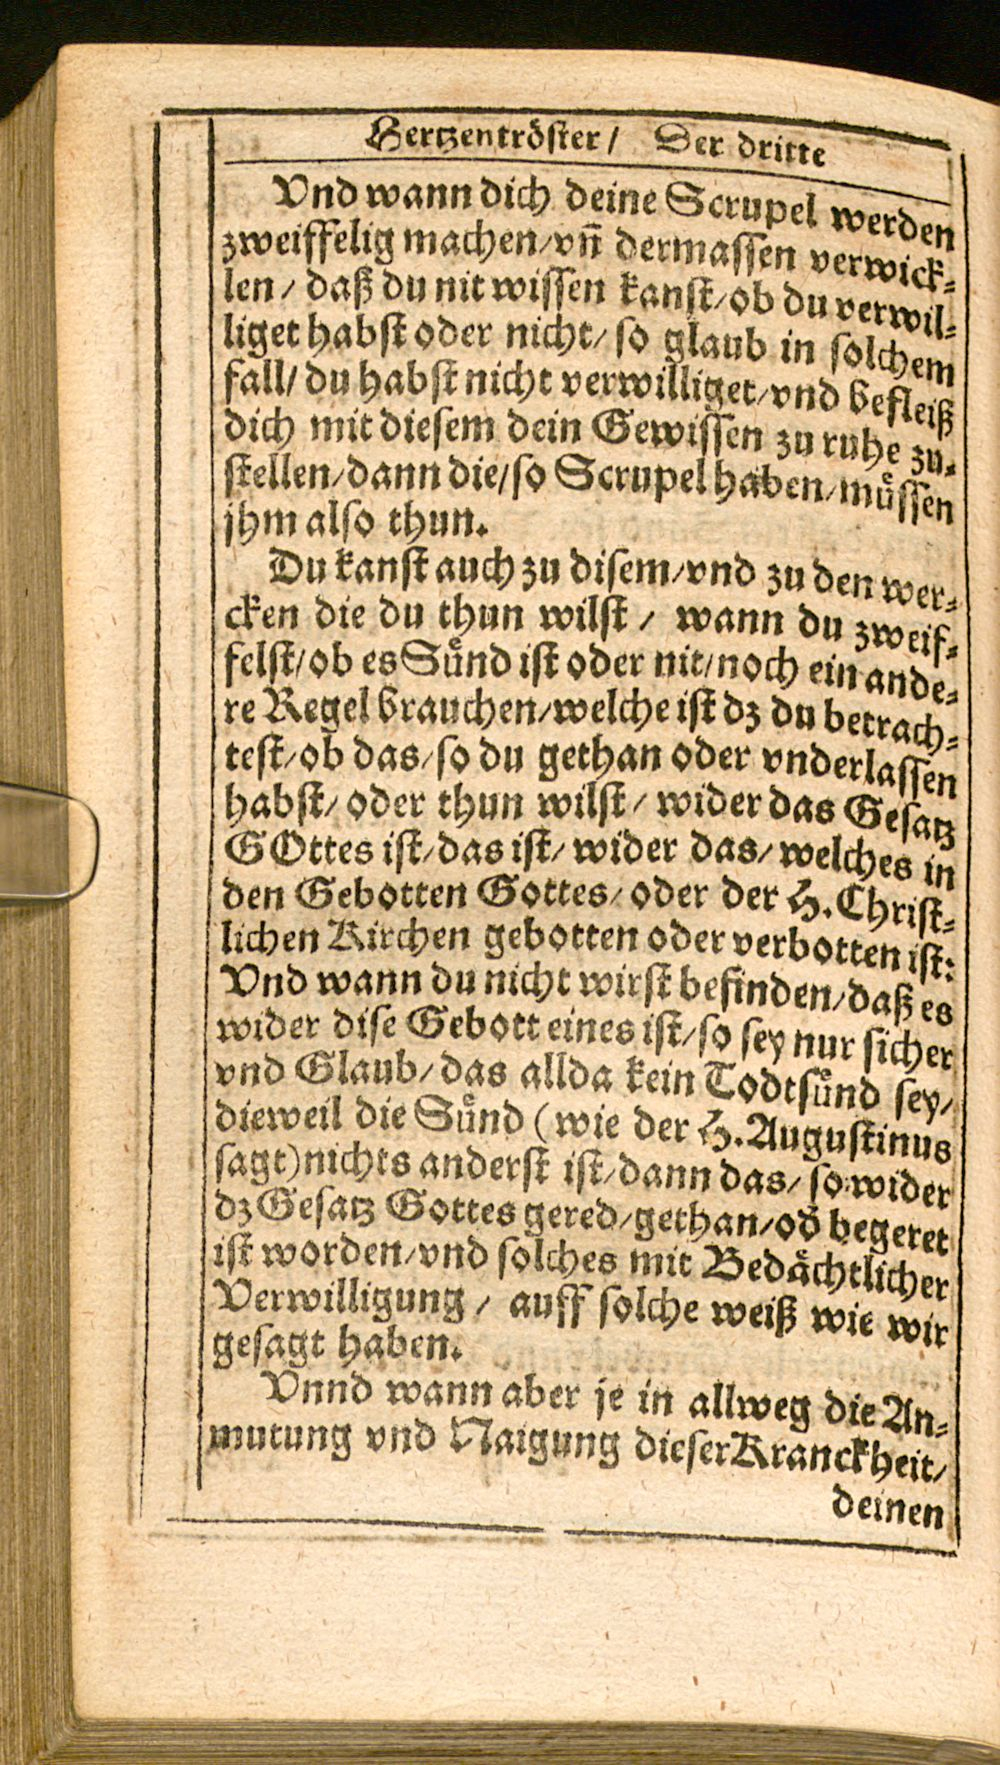 Hertzentröster/ Der dritte
Vnd wann dich deine Scrupel werden
zweiffelig machen/vñ dermassen verwick-
len/ daß du nit wissen kanst/ob du verwil-
liget habst oder nicht/ so glaub in solchem
fall/ du habst nicht verwilliget/vnd befleiß
dich mit diesem dein Gewissen zu ruhe zu-
stellen/dann die/so Scrupel haben/müssen
jhm also thun.
Du kanst auch zu disem/vnd zu den wer-
cken die du thun wilst / wann du zweif-
felst/ob es Sünd ist oder nit/noch ein ande-
re Regel brauchen/welche ist dz du betrach-
test/ob das/so du gethan oder vnderlassen
habst/ oder thun wilst / wider das Gesatz
GOttes ist/das ist/ wider das/welches in
den Gebotten Gottes/oder der H. Christ-
lichen Kirchen gebotten oder verbotten ist:
Vnd wann du nicht wirst befinden/daß es
wider dise Gebott eines ist/so sey nur sicher
vnd Glaub/das allda kein Todtsünd sey/
dieweil die Sünd (wie der H. Augustinus
sagt)nichts anderst ist/dann das/ so wider
dz Gesatz Gottes gered/gethan/oð begeret
ist worden/vnd solches mit Bedächtlicher
Verwilligung / auff solche weiß wie wir
gesagt haben.
Vnnd wann aber je in allweg die An-
mutung vnd Naigung dieser Kranckheit/
deinen